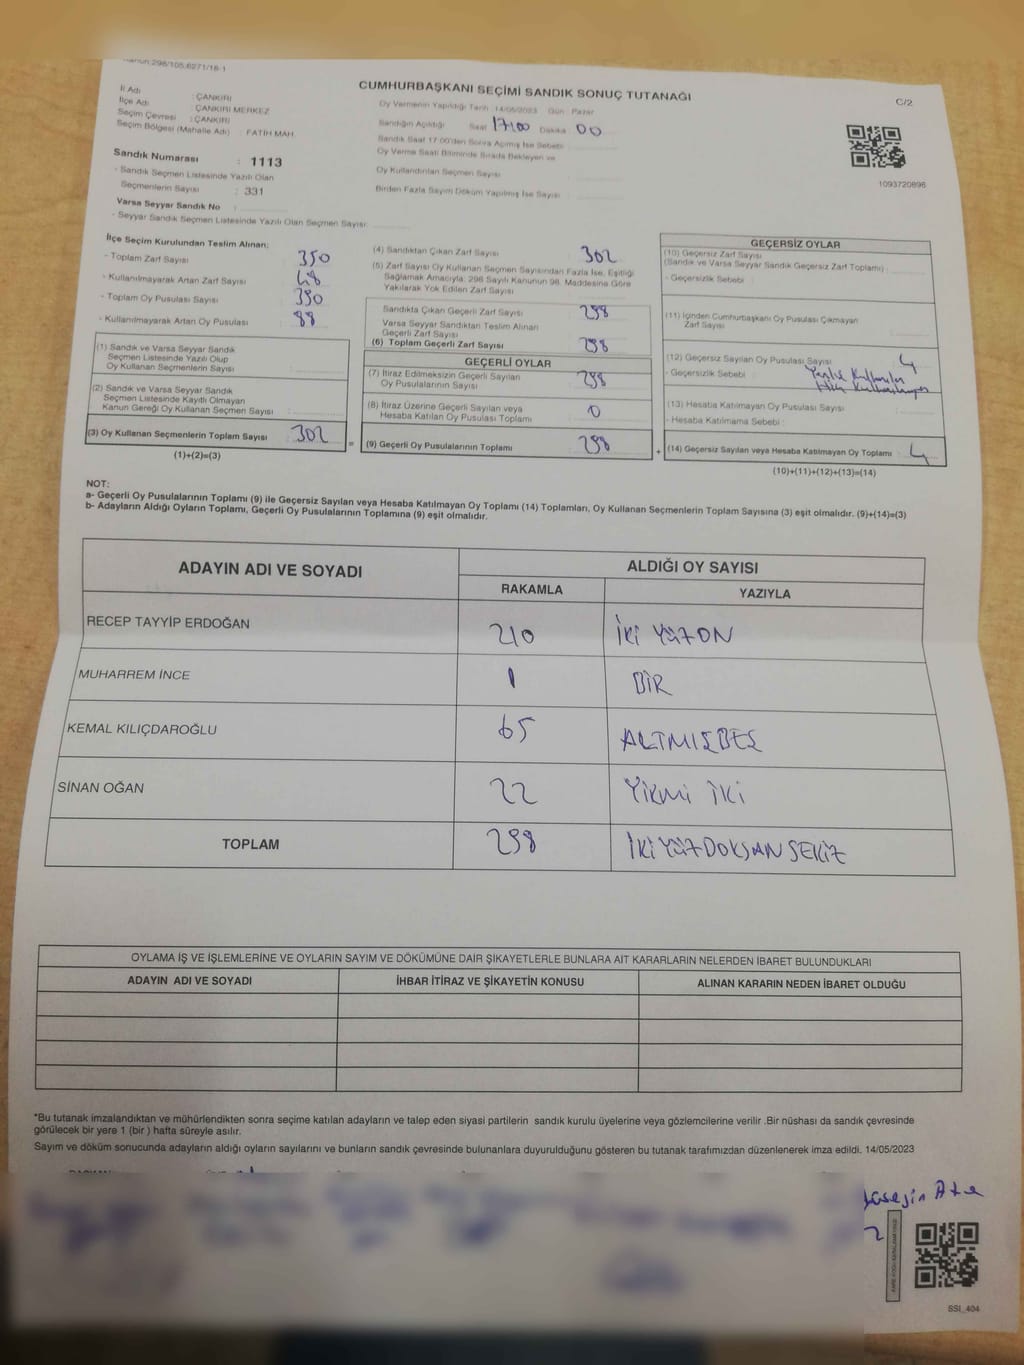 Kanun:298/105,6271/18-1
CUMHURBAŞKANI SEÇİMİ SANDIK SONUÇ TUTANAĞI
C/2
İl Adı : ÇANKIRI
İlçe Adı : ÇANKIRI MERKEZ
Seçim Çevresi : ÇANKIRI
Seçim Bölgesi (Mahalle Adı) : FATİH MAH.
Oy Vermenin Yapıldığı Tarih 14/05/2023 Gün : Pazar
Sandığın Açıldığı Saat 17:00 Dakika 00
Sandık Saat 17:00'den Sonra Açılmış İse Sebebi :
Oy Verme Saati Bitiminde Sırada Bekleyen ve
Oy Kullandırılan Seçmen Sayısı
Birden Fazla Sayım Döküm Yapılmış İse Sayısı :
1093720896
Sandık Numarası : 1113
- Sandık Seçmen Listesinde Yazılı Olan
Seçmenlerin Sayısı : 331
Varsa Seyyar Sandık No :
- Seyyar Sandık Seçmen Listesinde Yazılı Olan Seçmen Sayısı:
İlçe Seçim Kurulundan Teslim Alınan;
- Toplam Zarf Sayısı : 350
- Kullanılmayarak Artan Zarf Sayısı : 48
- Toplam Oy Pusulası Sayısı : 390
- Kullanılmayarak Artan Oy Pusulası : 88
(1) Sandık ve Varsa Seyyar Sandık
Seçmen Listesinde Yazılı Olup
Oy Kullanan Seçmenlerin Sayısı :
(2) Sandık ve Varsa Seyyar Sandık
Seçmen Listesinde Kayıtlı Olmayan
Kanun Gereği Oy Kullanan Seçmen Sayısı :
(3) Oy Kullanan Seçmenlerin Toplam Sayısı : 302
(1)+(2)=(3)
=
(4) Sandıktan Çıkan Zarf Sayısı : 302
(5) Zarf Sayısı Oy Kullanan Seçmen Sayısından Fazla İse, Eşitliği
Sağlamak Amacıyla; 298 Sayılı Kanunun 98. Maddesine Göre
Yakılarak Yok Edilen Zarf Sayısı :
Sandıkta Çıkan Geçerli Zarf Sayısı : 298
Varsa Seyyar Sandıktan Teslim Alınan
Geçerli Zarf Sayısı :
(6) Toplam Geçerli Zarf Sayısı : 298
GEÇERLİ OYLAR
(7) İtiraz Edilmeksizin Geçerli Sayılan
Oy Pusulalarının Sayısı : 298
(8) İtiraz Üzerine Geçerli Sayılan veya
Hesaba Katılan Oy Pusulası Toplamı : 0
(9) Geçerli Oy Pusulalarının Toplamı : 298
+
GEÇERSİZ OYLAR
(10) Geçersiz Zarf Sayısı
(Sandık ve Varsa Seyyar Sandık Geçersiz Zarf Toplamı) :
- Geçersizlik Sebebi :
(11) İçinden Cumhurbaşkanı Oy Pusulası Çıkmayan
Zarf Sayısı :
(12) Geçersiz Sayılan Oy Pusulası Sayısı : 4
- Geçersizlik Sebebi :
(13) Hesaba Katılmayan Oy Pusulası Sayısı :
- Hesaba Katılmama Sebebi :
(14) Geçersiz Sayılan veya Hesaba Katılmayan Oy Toplamı : 4
(10)+(11)+(12)+(13)=(14)
NOT:
a- Geçerli Oy Pusulalarının Toplamı (9) ile Geçersiz Sayılan veya Hesaba Katılmayan Oy Toplamı (14) Toplamları, Oy Kullanan Seçmenlerin Toplam Sayısına (3) eşit olmalıdır. (9)+(14)=(3)
b- Adayların Aldığı Oyların Toplamı, Geçerli Oy Pusulalarının Toplamına (9) eşit olmalıdır.
ADAYIN ADI VE SOYADI
ALDIĞI OY SAYISI
RAKAMLA YAZIYLA
RECEP TAYYİP ERDOĞAN 210 İKİ YÜZON
MUHARREM İNCE 1 BİR
KEMAL KILIÇDAROĞLU 65 ALTMIŞBEŞ
SİNAN OĞAN 22 YİRMİ İKİ
TOPLAM 298 İKİ YÜZDOKSAN SEKİZ
OYLAMA İŞ VE İŞLEMLERİNE VE OYLARIN SAYIM VE DÖKÜMÜNE DAİR ŞİKAYETLERLE BUNLARA AİT KARARLARIN NELERDEN İBARET BULUNDUKLARI
ADAYIN ADI VE SOYADI İHBAR İTİRAZ VE ŞİKAYETİN KONUSU ALINAN KARARIN NEDEN İBARET OLDUĞU
*Bu tutanak imzalandıktan ve mühürlendikten sonra seçime katılan adayların ve talep eden siyasi partilerin sandık kurulu üyelerine veya gözlemcilerine verilir .Bir nüshası da sandık çevresinde
görülecek bir yere 1 (bir ) hafta süreyle asılır.
Sayım ve döküm sonucunda adayların aldığı oyların sayılarını ve bunların sandık çevresinde bulunanlara duyurulduğunu gösteren bu tutanak tarafımızdan düzenlenerek imza edildi. 14/05/2023
SSI_404